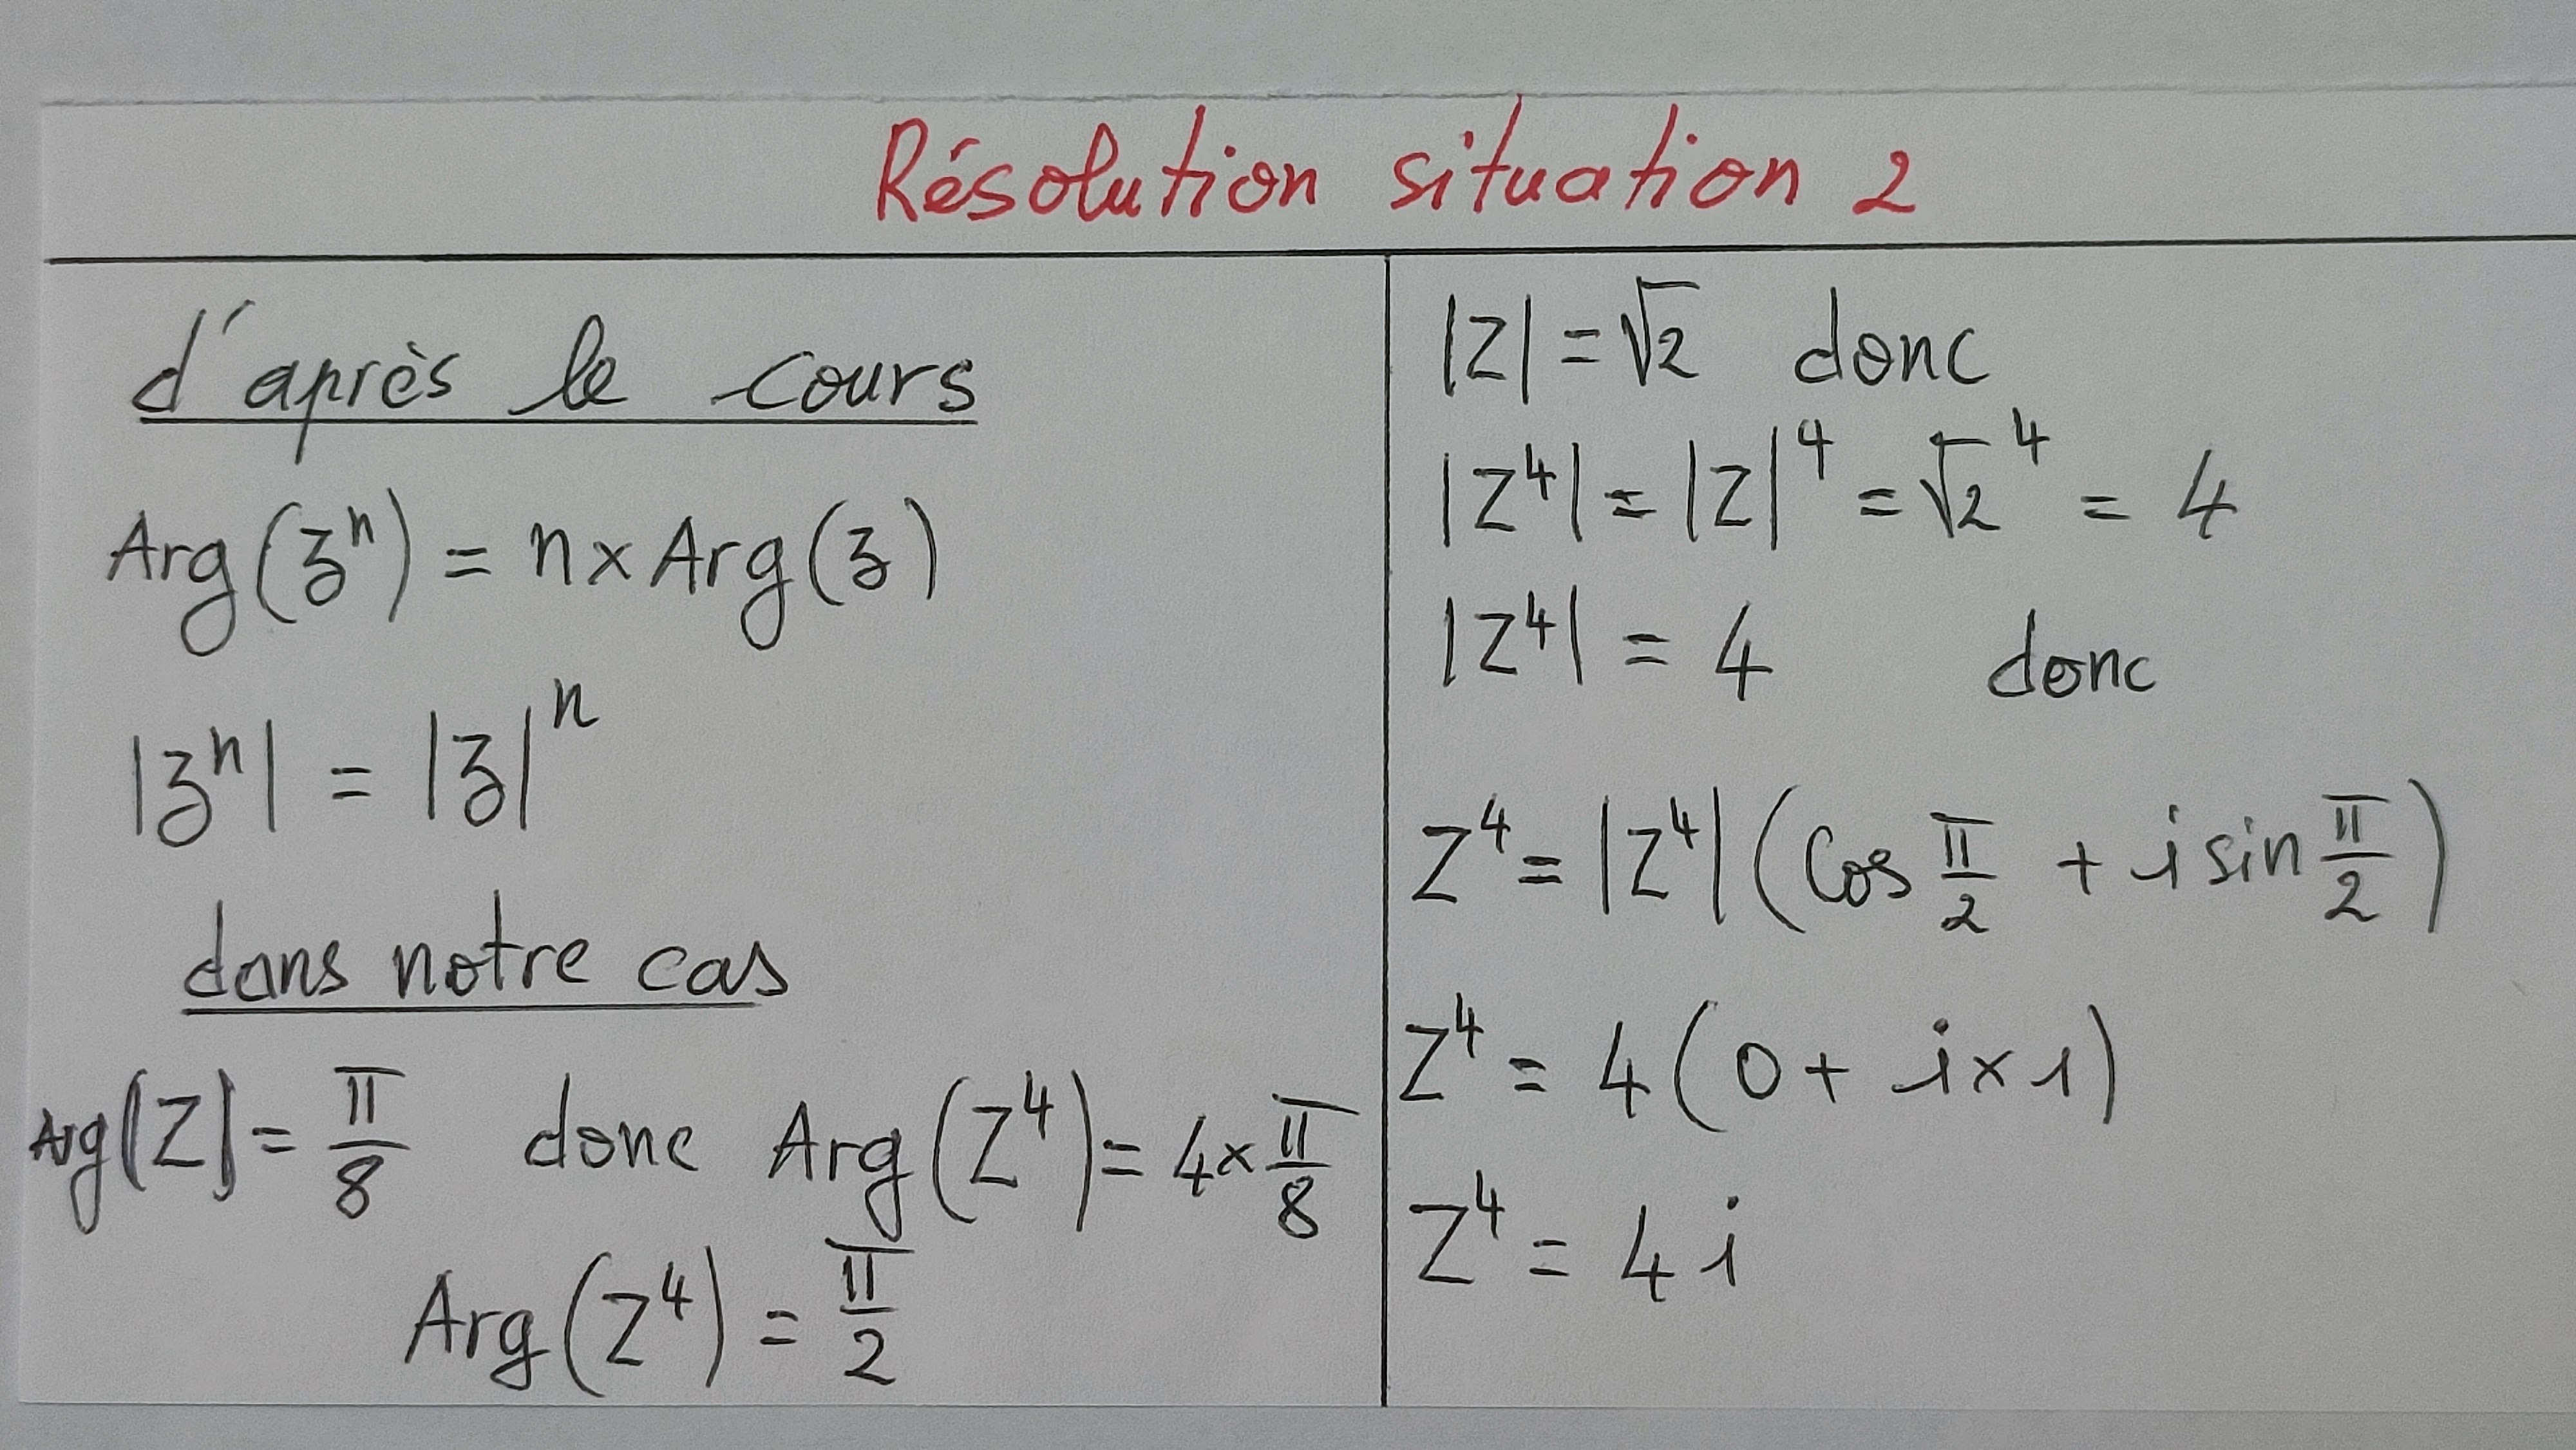 Résolution situation 2
d'après le cours
Arg(zⁿ) = n × Arg(z)
|zⁿ| = |z|ⁿ
dans notre cas
Arg(Z) = π/8 donc Arg(Z⁴) = 4 × π/8
Arg(Z⁴) = π/2
|Z| = √2 donc
|Z⁴| = |Z|⁴ = √2⁴ = 4
|Z⁴| = 4 donc
Z⁴ = |Z⁴| (Cos π/2 + i sin π/2)
Z⁴ = 4 (0 + i × 1)
Z⁴ = 4 i